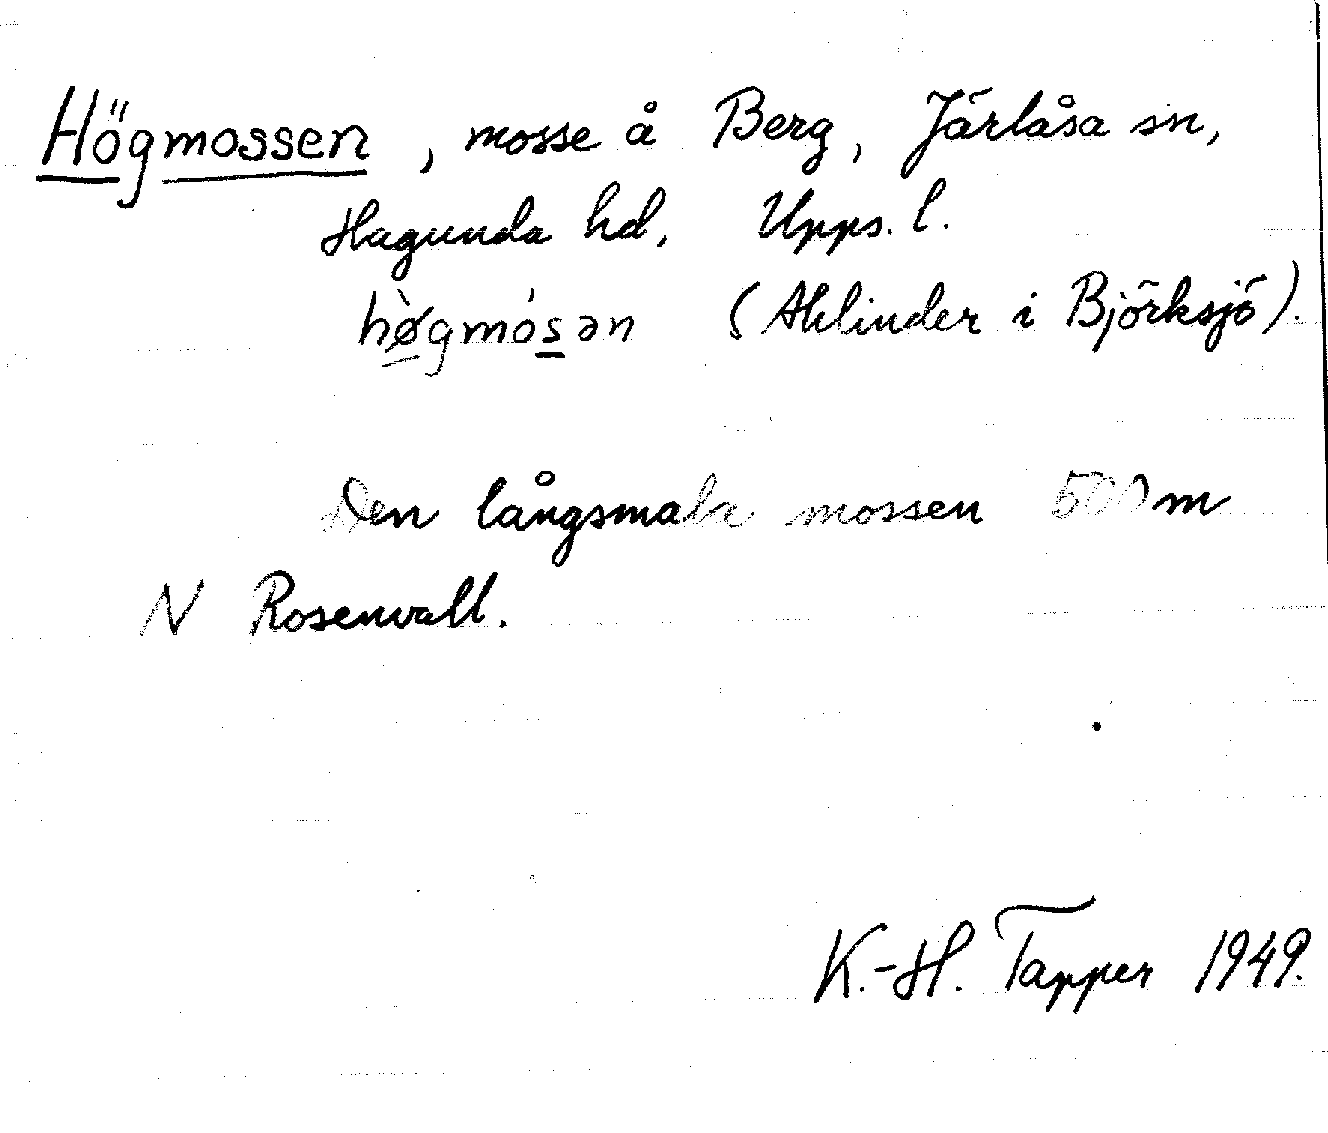 Högmossen, mosse å Berg, Järlåsa sn,
Hagunda hd, Upps. l.
hø̀gmósən (Ahlinder i Björksjö).
Den långsmala mossen 500 m
N Rosenvall.
K.-H. Tapper 1949.